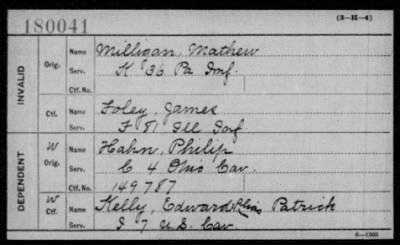 180041
(3-H-4)
INVALID
Orig. Name Milligan, Mathew
Serv. K 36 Pa Inf.
Ctf. No.
Ctf. Name Foley, James
Serv. F 81 Ill Inf
DEPENDENT
W Orig. Name Hahn, Philip
Serv. C 4 Ohio Cav.
Ctf. No. 149787
W Ctf. Name Kelly, Edward alias Patrick
Serv. I 7 U.S. Cav